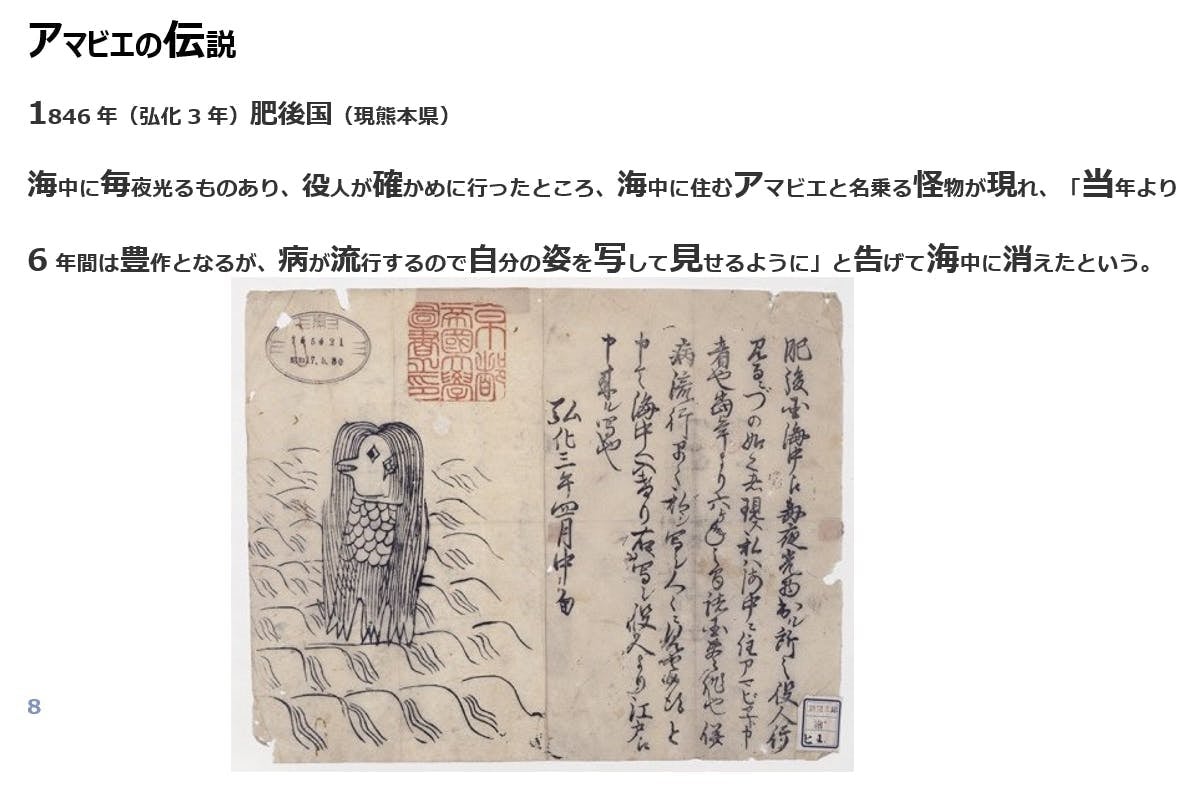 アマビエの伝説
1846 年（弘化 3 年）肥後国（現熊本県）
海中に毎夜光るものあり、役人が確かめに行ったところ、海中に住むアマビエと名乗る怪物が現れ、「当年より
6 年間は豊作となるが、病が流行するので自分の姿を写して見せるように」と告げて海中に消えたという。
京都
帝國大學
圖書之印
肥後国海中江毎夜光物出ル所之役人行
見るニづの如く者現ス私ハ海中ニ住アマビヱト申
者也當年より六ヶ年之間諸国豊作也併
病流行早々私ヲ写シ人々ニ見せ候得と
申て海中へ入けり右写シ役人より江戸江
申来ル写也
弘化三年四月中旬
8